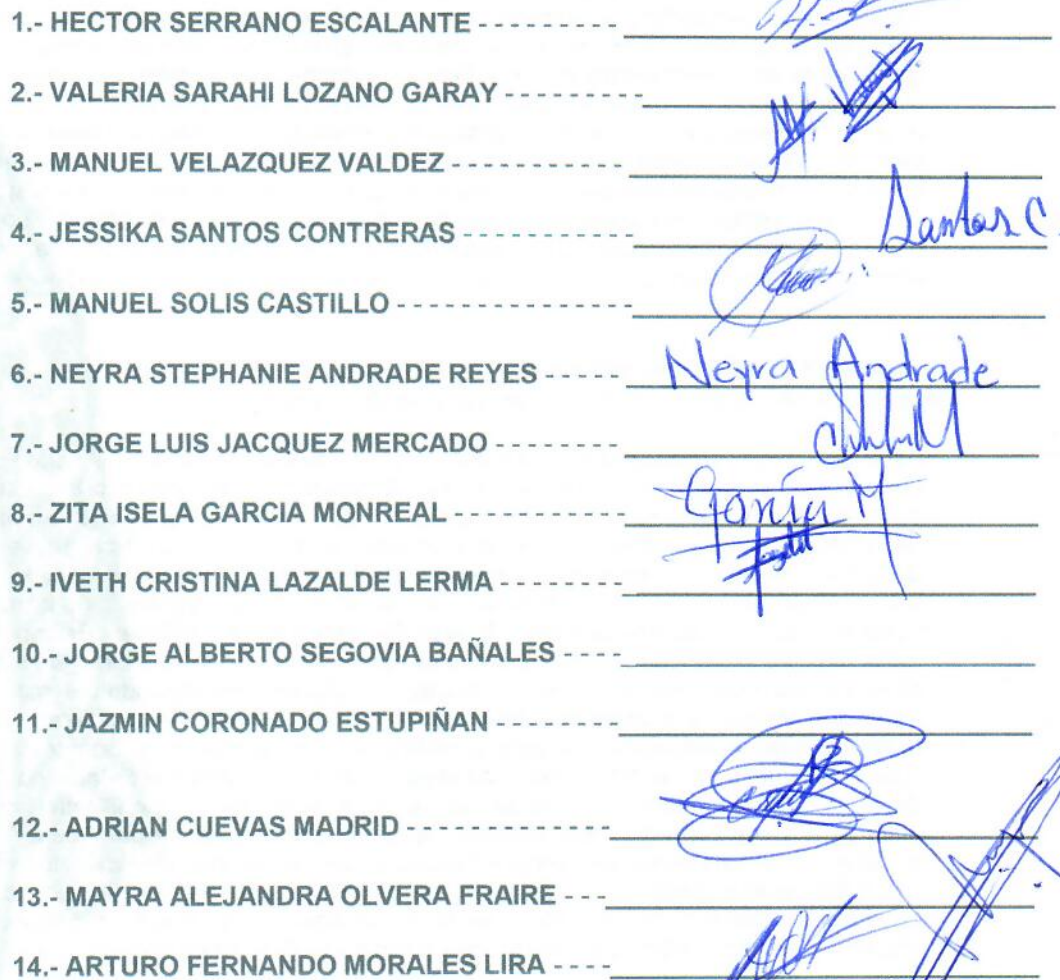 1.- HECTOR SERRANO ESCALANTE - - - - - - - - -
2.- VALERIA SARAHI LOZANO GARAY - - - - - - - - -
3.- MANUEL VELAZQUEZ VALDEZ - - - - - - - - - - -
4.- JESSIKA SANTOS CONTRERAS - - - - - - - - - - Santos C.
5.- MANUEL SOLIS CASTILLO - - - - - - - - - - - - - -
6.- NEYRA STEPHANIE ANDRADE REYES - - - - - Neyra Andrade
7.- JORGE LUIS JACQUEZ MERCADO - - - - - - - -
8.- ZITA ISELA GARCIA MONREAL - - - - - - - - - - García M
9.- IVETH CRISTINA LAZALDE LERMA - - - - - - - -
10.- JORGE ALBERTO SEGOVIA BAÑALES - - - -
11.- JAZMIN CORONADO ESTUPIÑAN - - - - - - - -
12.- ADRIAN CUEVAS MADRID - - - - - - - - - - - - -
13.- MAYRA ALEJANDRA OLVERA FRAIRE - - -
14.- ARTURO FERNANDO MORALES LIRA - - - -